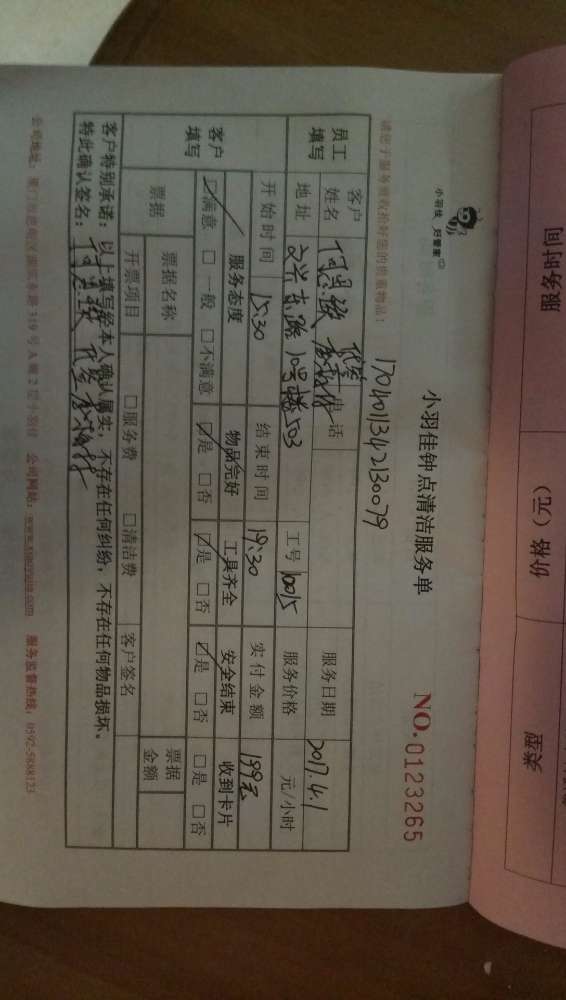 小羽佳 妇管家
小羽佳钟点清洁服务单
NO.0123265
请您于服务前收拾好您的贵重物品:
1704013421300079
员工填写
客户姓名 何思敏 电话 服务日期 2017.4.1
地址 工号 10015 服务价格 元/小时
开始时间 15:30 结束时间 19:30 实付金额 199元
客户填写
服务态度 物品完好 工具齐全 安全结束 收到卡片
☑满意 □一般 □不满意 ☑是 □否 ☑是 □否 ☑是 □否 □是 □否
票据 票据名称 票据金额
开票项目 □服务费 □清洁费 客户签名
客户特别承诺:以上填写经本人确认属实,不存在任何纠纷,不存在任何物品损坏。
特此确认签名:
公司网站: www.xiaoyujia.com 服务监督热线: 0592-5888123
服务时间
价格(元)
类型